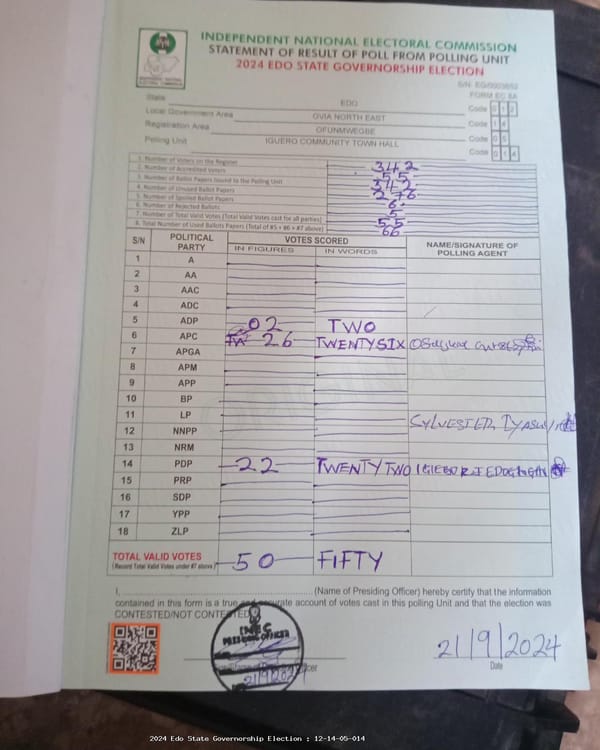 INDEPENDENT NATIONAL ELECTORAL COMMISSION
STATEMENT OF RESULT OF POLL FROM POLLING UNIT
2024 EDO STATE GOVERNORSHIP ELECTION
FORM EC 8A
State EDO Code 0 1 2
Local Government Area OVIA NORTH EAST Code 1 4
Registration Area OFUNMWEGBE Code 0 5
Polling Unit IGUERO COMMUNITY TOWN HALL Code 0 1 4
1. Number of Voters on the Register 342
2. Number of Accredited Voters 55
3. Number of Ballot Papers Issued to the Polling Unit 342
4. Number of Unused Ballot Papers 276
5. Number of Spoiled Ballot Papers 6
6. Number of Rejected Ballots 5
7. Number of Total Valid Votes (Total Valid Votes cast for all parties) 55
8. Total Number of Used Ballots Papers (Total of #5 + #6 + #7 above) 66
S/N POLITICAL PARTY VOTES SCORED NAME/SIGNATURE OF POLLING AGENT
IN FIGURES IN WORDS
1 A
2 AA
3 AAC
4 ADC
5 ADP 02 TWO
6 APC 26 TWENTYSIX
7 APGA
8 APM
9 APP
10 BP
11 LP SYLVESTER
12 NNPP
13 NRM
14 PDP 22 TWENTYTWO
15 PRP
16 SDP
17 YPP
18 ZLP
TOTAL VALID VOTES 50 FIFTY
(Record Total Valid Votes under #7 above)
I, (Name of Presiding Officer) hereby certify that the information
contained in this form is a true and accurate account of votes cast in this polling Unit and that the election was
CONTESTED/NOT CONTESTED
INEC
PRESIDING OFFICER
21/9/2024
21/9/2024
Date
2024 Edo State Governorship Election : 12-14-05-014